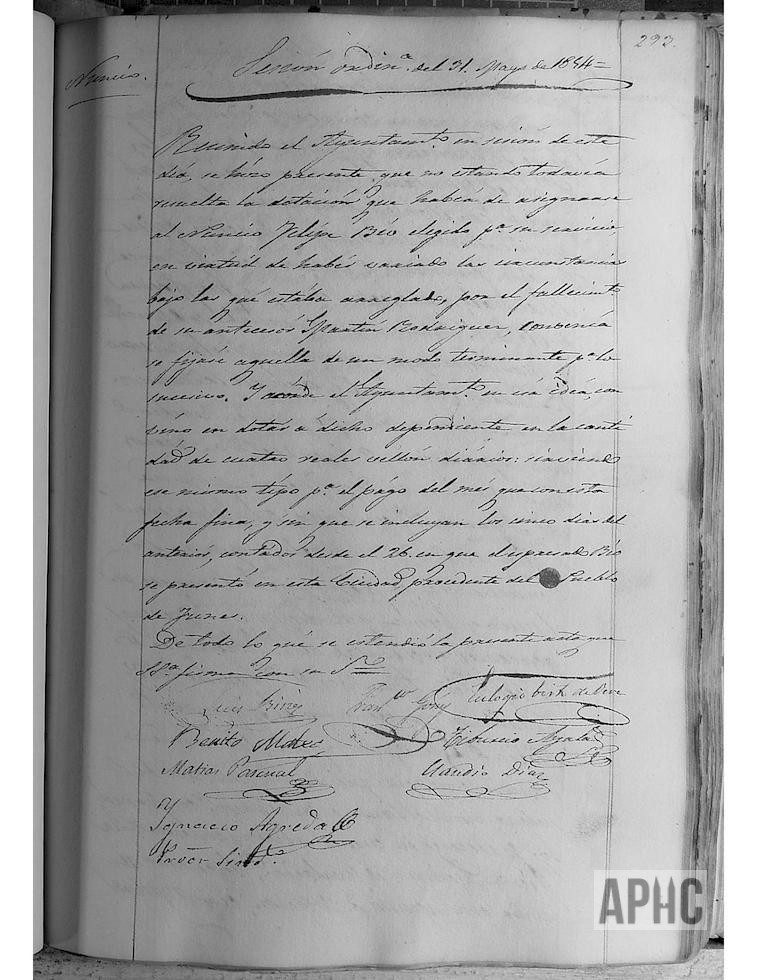 293.
Nuncio.
Sesión ordin.ª del 31. Mayo de 1844=
Reunido el Ayuntam.to en sesión de este
día, se hizo presente que no estando todavía
resuelta la dotación que había de asignarse
al Nuncio Felipe Bio elegido p.ª su servicio
en virtud de haber variado las circunstancias
bajo las qué estaba arreglada, por el fallecim.to
de su antecesor Martin Rodriguez, convenía
se fijáse aquella de un modo terminante p.ª lo
sucesivo. Y acorde el Ayuntam.to en esa idea, con
vino en dotar á dicho dependiente en la canti
dad de cuatro reales vellón diários: sirviendo
ese mismo tipo p.ª el págo del més que con esta
fecha fina, y sin que se incluyan los cinco dias del
anterior, contados desde el 26. en que el espresado Bio
se presentó en esta Ciudad, procedente del Pueblo
de Junes.
De todo lo qué se estendió la presente acta que
SS.ª firman con su S.rio
Luis Fran.co Eulogio
Benito Tiburcio Ayala
Matias Pascual Claudio Diaz
Y
Ignacio Agreda
Pro.or Sind.o
APHC